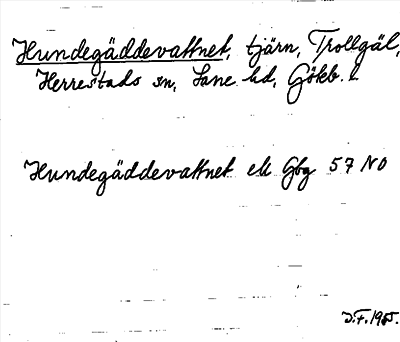 Hundegäddevattnet, tjärn, Trollgäl,
Herrestads sn, Lane hd, Gökb. l.
Hundegäddevattnet ek Gbg 57 NO
D.F. 1965.